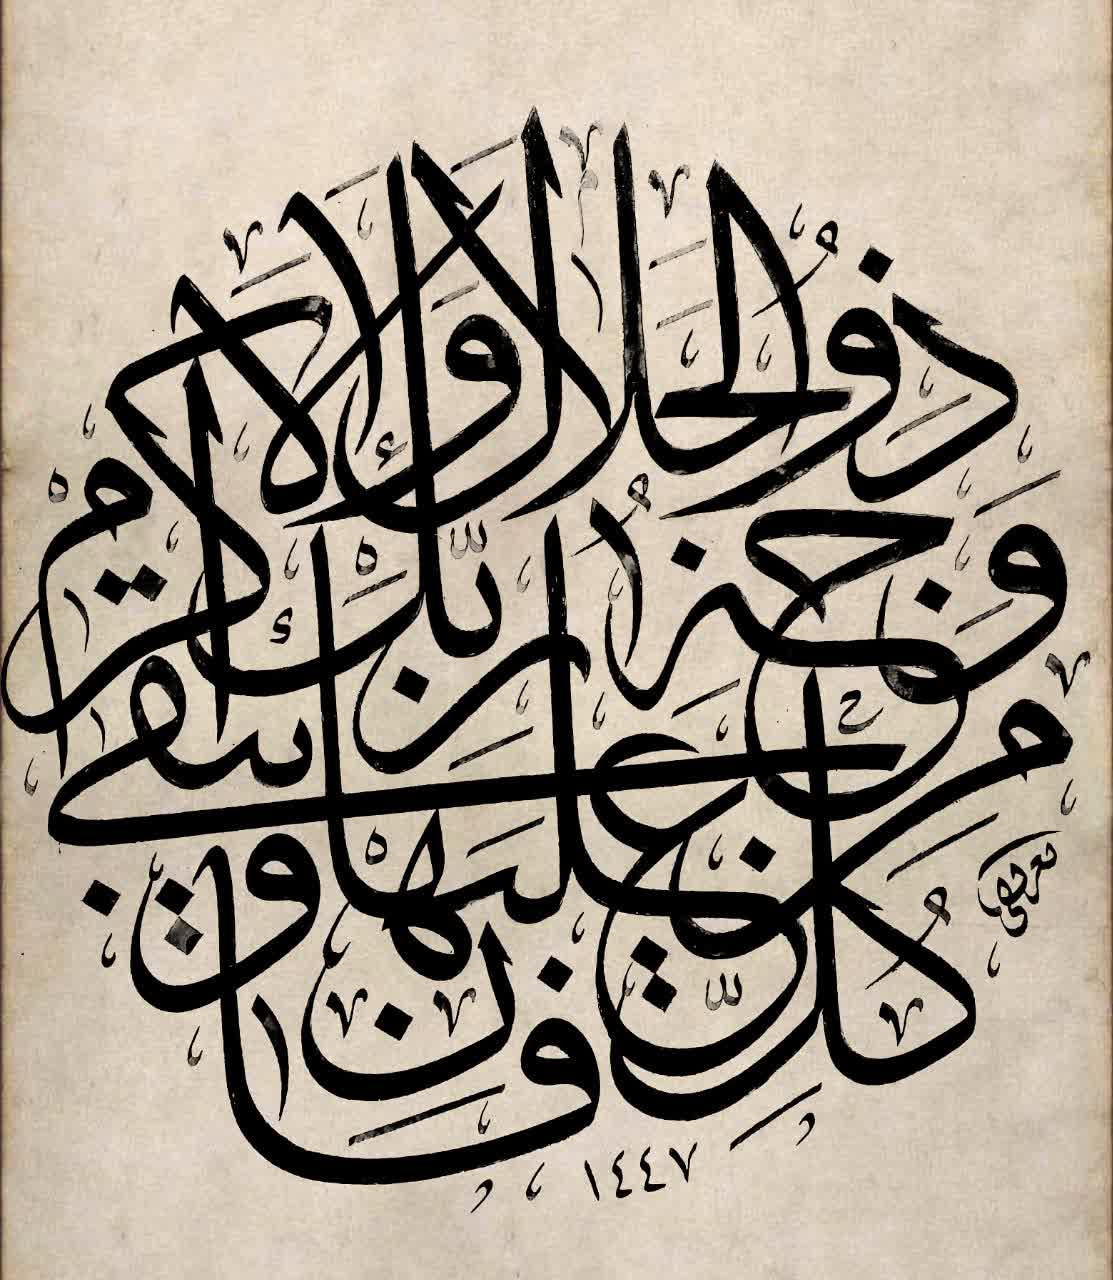 كُلُّ مَنْ عَلَيْهَا فَانٍ
وَيَبْقَىٰ
وَجْهُ رَبِّكَ
ذُو الْجَلَالِ وَالْإِكْرَامِ
١٤٤٧